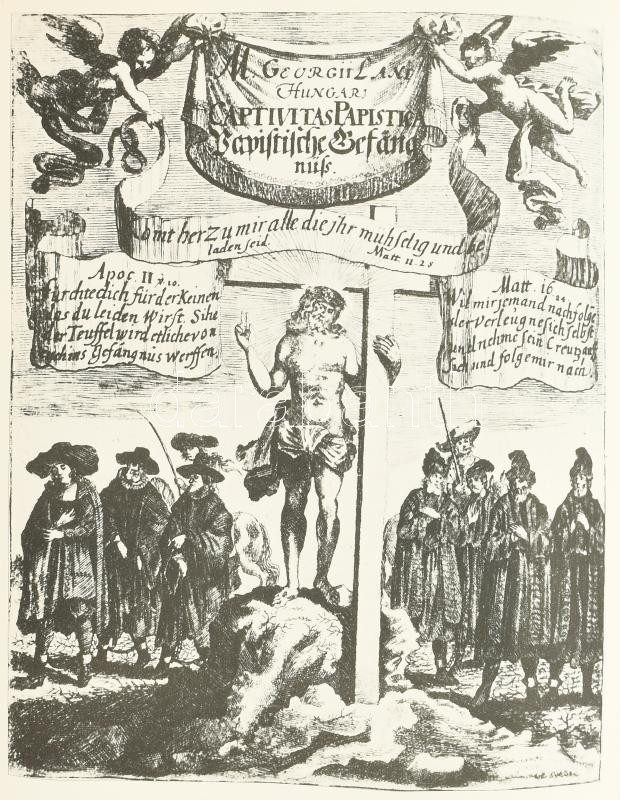 M. GEORGII LANI
HUNGARI
CAPTIVITAS PAPISTICA
Papistische Gefäng
nüß.
Komt her zu mir alle die jhr muhselig und be
laden seid. Matt 11.28
Apoc II v. 10.
Furchte dich für der Keinen
das du leiden Wirst. Sihe
der Teuffel wird etliche von
euch ins Gefängnus werffen.
Matt. 16
24
Wil mir jemand nachfolge
der Verleugne sich selbst
und nehme sein Creutz auf
Sich und folge mir nach.
darabanth